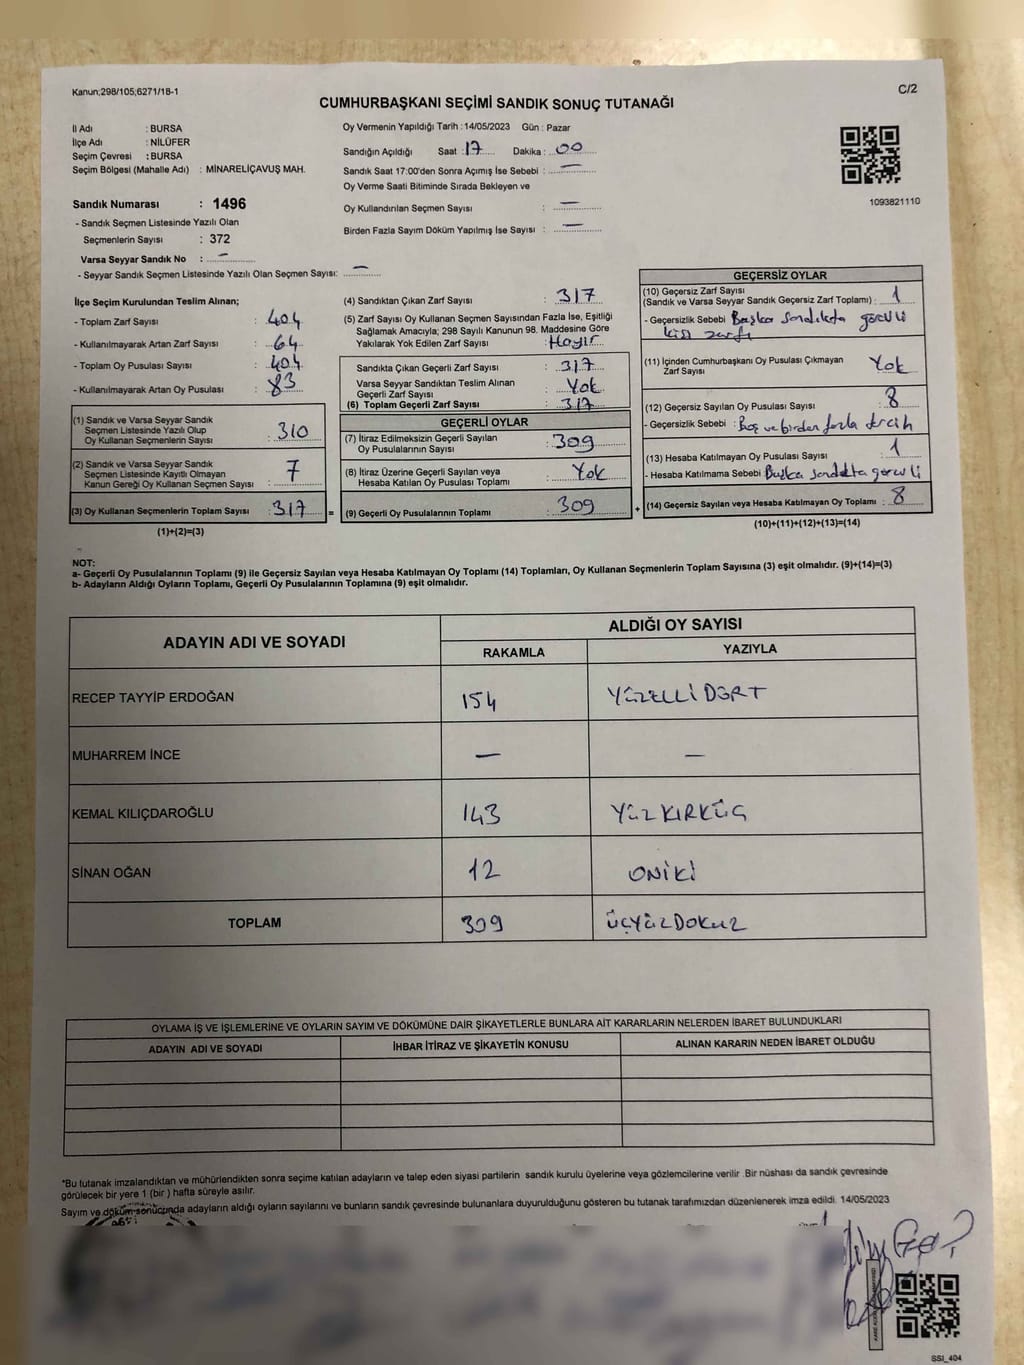 Kanun;298/105;6271/18-1
C/2
CUMHURBAŞKANI SEÇİMİ SANDIK SONUÇ TUTANAĞI
İl Adı : BURSA
İlçe Adı : NİLÜFER
Seçim Çevresi : BURSA
Seçim Bölgesi (Mahalle Adı) : MİNARELİÇAVUŞ MAH.
Sandık Numarası : 1496
- Sandık Seçmen Listesinde Yazılı Olan
Seçmenlerin Sayısı : 372
Varsa Seyyar Sandık No : —
- Seyyar Sandık Seçmen Listesinde Yazılı Olan Seçmen Sayısı: —
Oy Vermenin Yapıldığı Tarih : 14/05/2023 Gün : Pazar
Sandığın Açıldığı Saat : 17 Dakika : 00
Sandık Saat 17:00'den Sonra Açımış İse Sebebi : —
Oy Verme Saati Bitiminde Sırada Bekleyen ve
Oy Kullandırılan Seçmen Sayısı : —
Birden Fazla Sayım Döküm Yapılmış İse Sayısı : —
1093821110
İlçe Seçim Kurulundan Teslim Alınan;
- Toplam Zarf Sayısı : 404
- Kullanılmayarak Artan Zarf Sayısı : 64
- Toplam Oy Pusulası Sayısı : 404
- Kullanılmayarak Artan Oy Pusulası : 83
(1) Sandık ve Varsa Seyyar Sandık
Seçmen Listesinde Yazılı Olup
Oy Kullanan Seçmenlerin Sayısı : 310
(2) Sandık ve Varsa Seyyar Sandık
Seçmen Listesinde Kayıtlı Olmayan
Kanun Gereği Oy Kullanan Seçmen Sayısı : 7
(3) Oy Kullanan Seçmenlerin Toplam Sayısı : 317 =
(1)+(2)=(3)
(4) Sandıktan Çıkan Zarf Sayısı : 317
(5) Zarf Sayısı Oy Kullanan Seçmen Sayısından Fazla İse, Eşitliği
Sağlamak Amacıyla; 298 Sayılı Kanunun 98. Maddesine Göre
Yakılarak Yok Edilen Zarf Sayısı : Hayır
Sandıkta Çıkan Geçerli Zarf Sayısı : 317
Varsa Seyyar Sandıktan Teslim Alınan
Geçerli Zarf Sayısı : Yok
(6) Toplam Geçerli Zarf Sayısı : 317
GEÇERLİ OYLAR
(7) İtiraz Edilmeksizin Geçerli Sayılan
Oy Pusulalarının Sayısı : 309
(8) İtiraz Üzerine Geçerli Sayılan veya
Hesaba Katılan Oy Pusulası Toplamı : Yok
(9) Geçerli Oy Pusulalarının Toplamı : 309 +
GEÇERSİZ OYLAR
(10) Geçersiz Zarf Sayısı
(Sandık ve Varsa Seyyar Sandık Geçersiz Zarf Toplamı) : 1
- Geçersizlik Sebebi : Başka sandıkta görevli
kişi zarfı
(11) İçinden Cumhurbaşkanı Oy Pusulası Çıkmayan
Zarf Sayısı Yok
(12) Geçersiz Sayılan Oy Pusulası Sayısı : 8
- Geçersizlik Sebebi : Boş ve birden fazla tercih
(13) Hesaba Katılmayan Oy Pusulası Sayısı : 1
- Hesaba Katılmama Sebebi : Başka sandıkta görevli
(14) Geçersiz Sayılan veya Hesaba Katılmayan Oy Toplamı : 8
(10)+(11)+(12)+(13)=(14)
NOT:
a- Geçerli Oy Pusulalarının Toplamı (9) ile Geçersiz Sayılan veya Hesaba Katılmayan Oy Toplamı (14) Toplamları, Oy Kullanan Seçmenlerin Toplam Sayısına (3) eşit olmalıdır. (9)+(14)=(3)
b- Adayların Aldığı Oyların Toplamı, Geçerli Oy Pusulalarının Toplamına (9) eşit olmalıdır.
ADAYIN ADI VE SOYADI ALDIĞI OY SAYISI
RAKAMLA YAZIYLA
RECEP TAYYİP ERDOĞAN 154 YÜZELLİDÖRT
MUHARREM İNCE — —
KEMAL KILIÇDAROĞLU 143 YÜZKIRKÜÇ
SİNAN OĞAN 12 ONİKİ
TOPLAM 309 ÜÇYÜZDOKUZ
OYLAMA İŞ VE İŞLEMLERİNE VE OYLARIN SAYIM VE DÖKÜMÜNE DAİR ŞİKAYETLERLE BUNLARA AİT KARARLARIN NELERDEN İBARET BULUNDUKLARI
ADAYIN ADI VE SOYADI İHBAR İTİRAZ VE ŞİKAYETİN KONUSU ALINAN KARARIN NEDEN İBARET OLDUĞU
*Bu tutanak imzalandıktan ve mühürlendikten sonra seçime katılan adayların ve talep eden siyasi partilerin sandık kurulu üyelerine veya gözlemcilerine verilir .Bir nüshası da sandık çevresinde
görülecek bir yere 1 (bir ) hafta süreyle asılır.
Sayım ve döküm sonucunda adayların aldığı oyların sayılarını ve bunların sandık çevresinde bulunanlara duyurulduğunu gösteren bu tutanak tarafımızdan düzenlenerek imza edildi. 14/05/2023
SSI_404